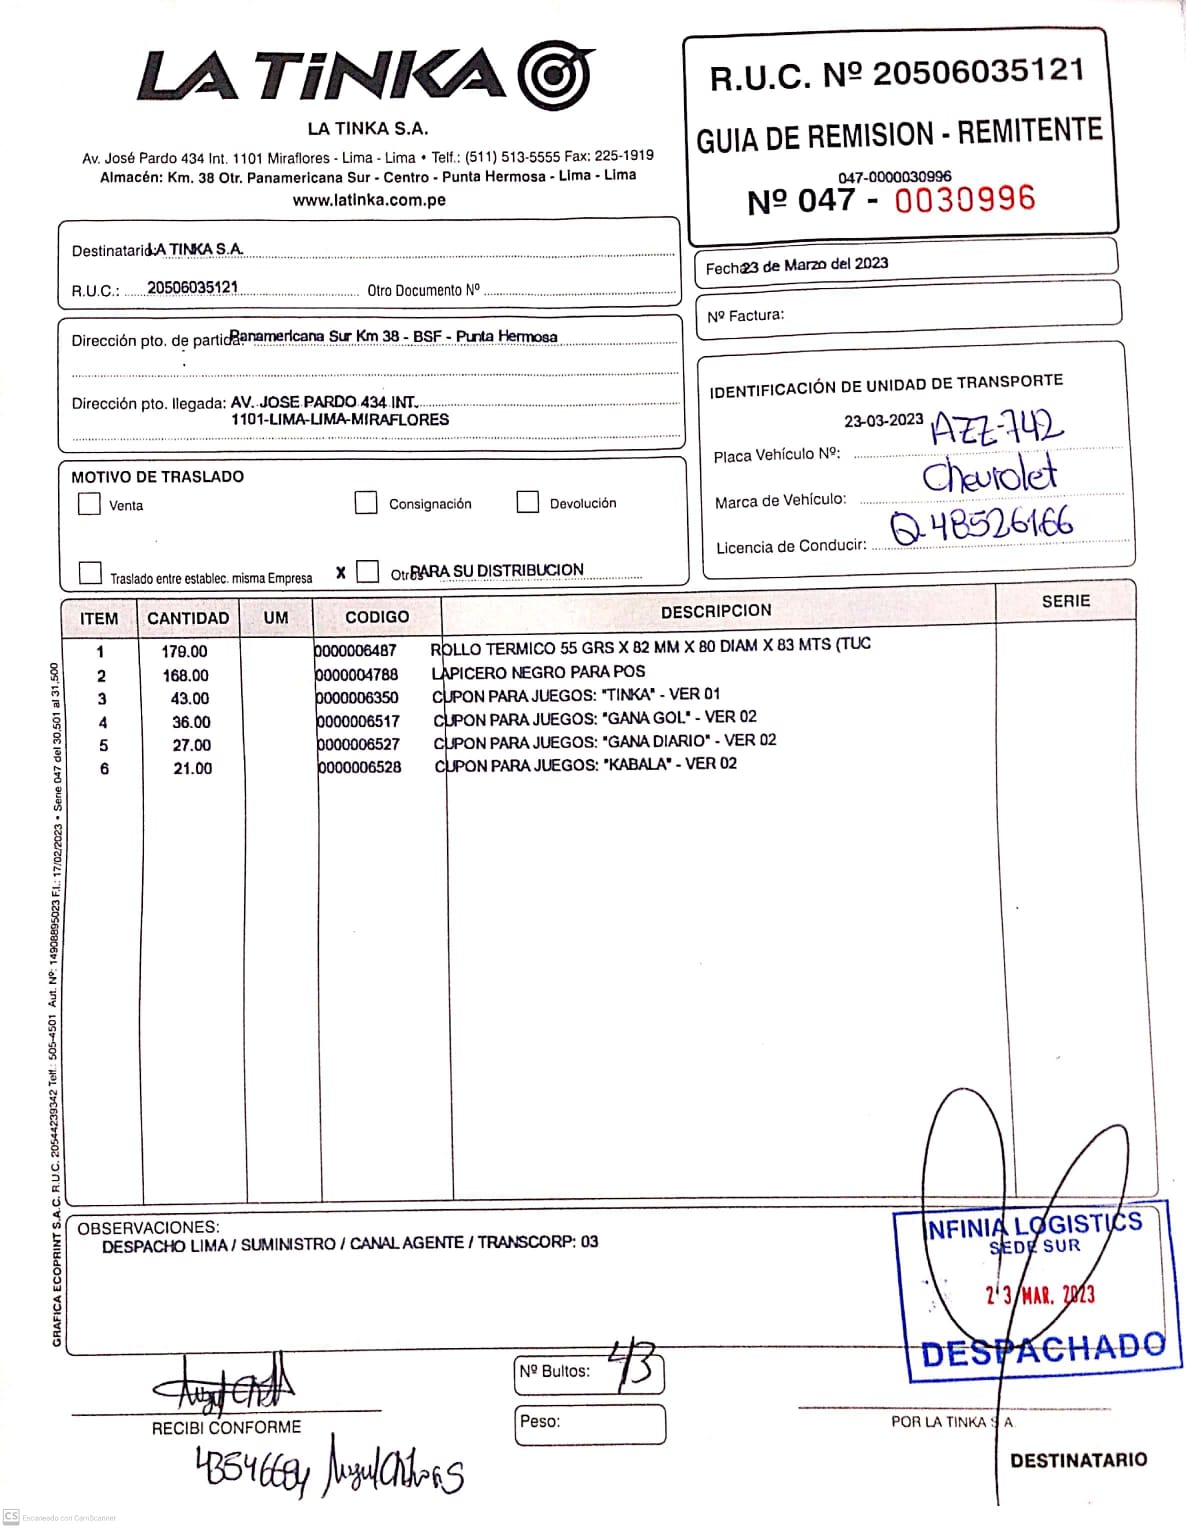 LA TiNKA
LA TINKA S.A.
Av. José Pardo 434 Int. 1101 Miraflores - Lima - Lima • Telf.: (511) 513-5555 Fax: 225-1919
Almacén: Km. 38 Otr. Panamericana Sur - Centro - Punta Hermosa - Lima - Lima
www.latinka.com.pe
R.U.C. Nº 20506035121
GUIA DE REMISION - REMITENTE
047-0000030996
Nº 047 - 0030996
Destinatario: LA TINKA S.A.
R.U.C.: 20506035121 Otro Documento Nº
Fecha: 23 de Marzo del 2023
Nº Factura:
Dirección pto. de partida: Panamericana Sur Km 38 - BSF - Punta Hermosa
Dirección pto. llegada: AV. JOSE PARDO 434 INT.
1101-LIMA-LIMA-MIRAFLORES
IDENTIFICACIÓN DE UNIDAD DE TRANSPORTE
23-03-2023
Placa Vehículo Nº: AZZ-742
Marca de Vehículo: Chevrolet
Licencia de Conducir: Q-48526166
MOTIVO DE TRASLADO
Venta Consignación Devolución
Traslado entre establec. misma Empresa X Otros PARA SU DISTRIBUCION
ITEM CANTIDAD UM CODIGO DESCRIPCION SERIE
1 179.00 0000006487 ROLLO TERMICO 55 GRS X 82 MM X 80 DIAM X 83 MTS (TUC
2 168.00 0000004788 LAPICERO NEGRO PARA POS
3 43.00 0000006350 CUPON PARA JUEGOS: "TINKA" - VER 01
4 36.00 0000006517 CUPON PARA JUEGOS: "GANA GOL" - VER 02
5 27.00 0000006527 CUPON PARA JUEGOS: "GANA DIARIO" - VER 02
6 21.00 0000006528 CUPON PARA JUEGOS: "KABALA" - VER 02
GRAFICA ECOPRINT S.A.C. R.U.C. 20544239342 Telf.: 505-4501 Aut. Nº: 14908895023 F.I.: 17/02/2023 • Serie 047 del 30,501 al 31,500
OBSERVACIONES:
DESPACHO LIMA / SUMINISTRO / CANAL AGENTE / TRANSCORP: 03
NFINIA LOGISTICS
SEDE SUR
23 MAR. 2023
DESPACHADO
Nº Bultos: 43
Peso:
RECIBI CONFORME
43546684
POR LA TINKA S.A.
DESTINATARIO
CS Escaneado con CamScanner